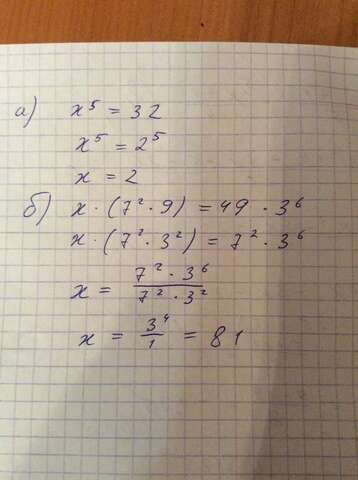 а) x⁵ = 32
x⁵ = 2⁵
x = 2
б) x · (7² · 9) = 49 · 3⁶
x · (7² · 3²) = 7² · 3⁶
x = 7² · 3⁶ / 7² · 3²
x = 3⁴ / 1 = 81